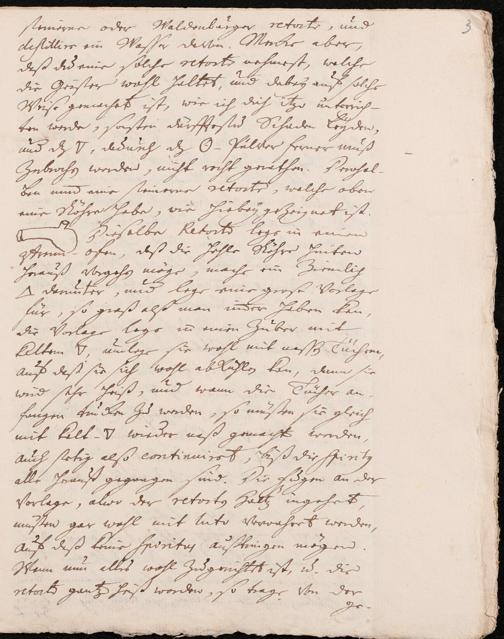 3
steinerne oder Waldenburger retorte, und
destillire ein Wasser davon. Mercke aber,
daß du eine solche retorte nehmest, welche
die Geister wohl haltet, und dabey auf solche
Weiß gemachet ist, wie ich dich itzo unterrich-
ten werde, sonsten dürfftestu Schaden leyden,
und dz 🜄, dadurch dz 🜔 ferner muß
werden, nicht recht gerathen. Derohal-
ben nimm eine steinerne retorte, welche oben
eine Röhre habe, wie hiebey gezeignet ist.
Dieselbe Retorte lege in einen
ofen, daß die hohle Röhre hinten
herauß gehen möge, mache ein ziemlich
🜂 darunter, und lege eine große Vorlage
für, so groß alß man immer haben kan,
die Vorlage lege in einen Zuber mit
kaltem 🜄, umlege sie wohl mit nassen Tüchern,
auf daß sie sich wohl abkühlen kan, denn sie
wird sehr heiß, und wann die Tücher an-
fangen trucken zu werden, so müßen sie gleich
mit kalt 🜄 wieder naß gemacht werden,
auch stetig alß continuiret, biß die spiritus
alle herauß gegangen sind. Die fugen an der
Vorlage, alwo der retorte Halß ingehet,
müßen gar wohl mit luto verwahret werden,
auf daß keine Spiritus außtringen mögen.
Wenn nun alles wohl zugerichtet ist, u. die
retorte gantz heiß worden, so trage von der
ge-